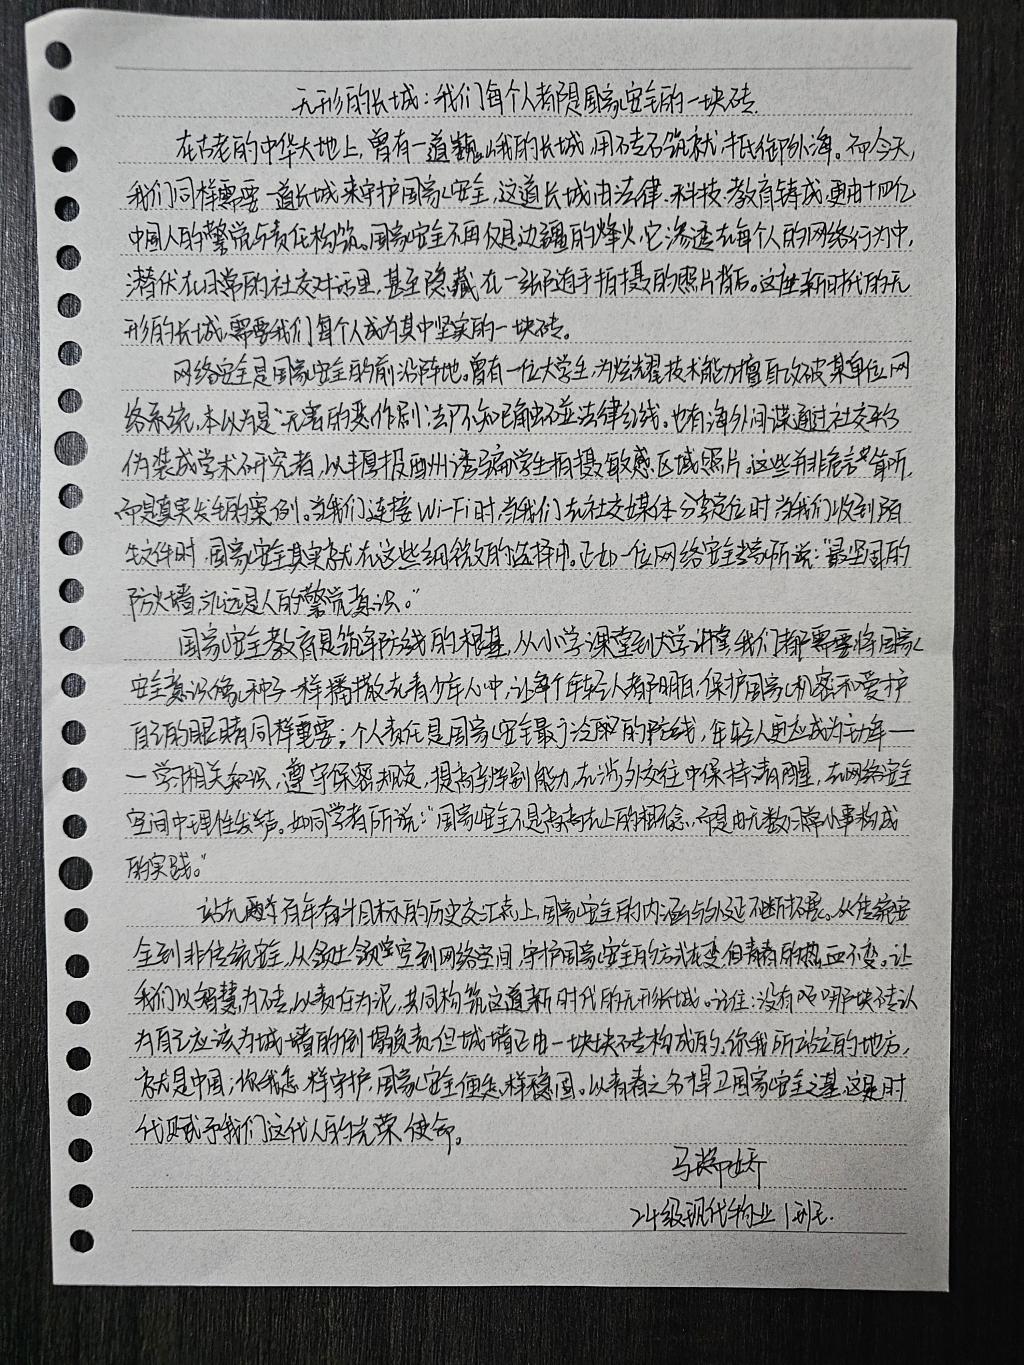 无形的长城:我们每个人都是国家安全的一块砖.
在古老的中华大地上,曾有一道巍峨的长城,用砖石筑就,抵御外海。而今天,
我们同样需要一道长城来守护国家安全,这道长城由法律、科技、教育铸成,更由十四亿
中国人的警觉与责任构筑。国家安全不再仅是边疆的烽火,它渗透在每个人的网络行为中,
潜伏在日常的社交对话里,甚至隐藏在一张随手拍摄的照片背后。这座新时代的无
形的长城,需要我们每个人成为其中坚实的一块砖。
网络安全是国家安全的前沿阵地。曾有一位大学生,为炫耀技术能力擅自攻破某单位网
络系统,本以为是"无害的恶作剧",却不知已触碰法律红线。也有海外间谍通过社交平台
伪装成学术研究者,以丰厚报酬诱骗学生拍摄敏感区域照片,这些并非危言耸听,
而是真实发生的案例。当我们连接Wi-Fi时,当我们在社交媒体分享定位时当我们收到陌
生文件时,国家安全其实就在这些细微的选择中。正如一位网络安全专家所说:"最坚固的
防火墙,永远是人的警觉意识。"
国家安全教育是筑牢防线的根基,从小学课堂到大学讲堂我们都需要将国家
安全意识像种子一样播撒在青少年心中,让每个年轻人都明白,保护国家机密和爱护
自己的眼睛同样重要;个人责任是国家安全最予的防线,年轻人更应成为主力军—
—学习相关知识,遵守保密规定,提高辨别能力,在涉外交往中保持清醒,在网络安全
空间中理性发声。如同学者所说:"国家安全不是高高在上的概念,而是由无数日常小事构成
的实践。"
站在两个百年奋斗目标的历史交汇点上,国家安全的内涵与外延不断拓展。从传统安
全到非传统安全,从领土领空到网络空间,守护国家安全的方式在变但青春的热血不变。让
我们以智慧为砖,以责任为泥,共同构筑这道新时代的无形长城。记住:没有哪块砖认
为自己应该为城墙的倒塌负责,但城墙正由一块块砖构成的。你我所站立的地方,
就是中国;你我怎样守护,国家安全便怎样稳固。以青春之名捍卫国家安全之基,这是时
代赋予我们这代人的光荣使命。
马娇
24级现代物业1班.